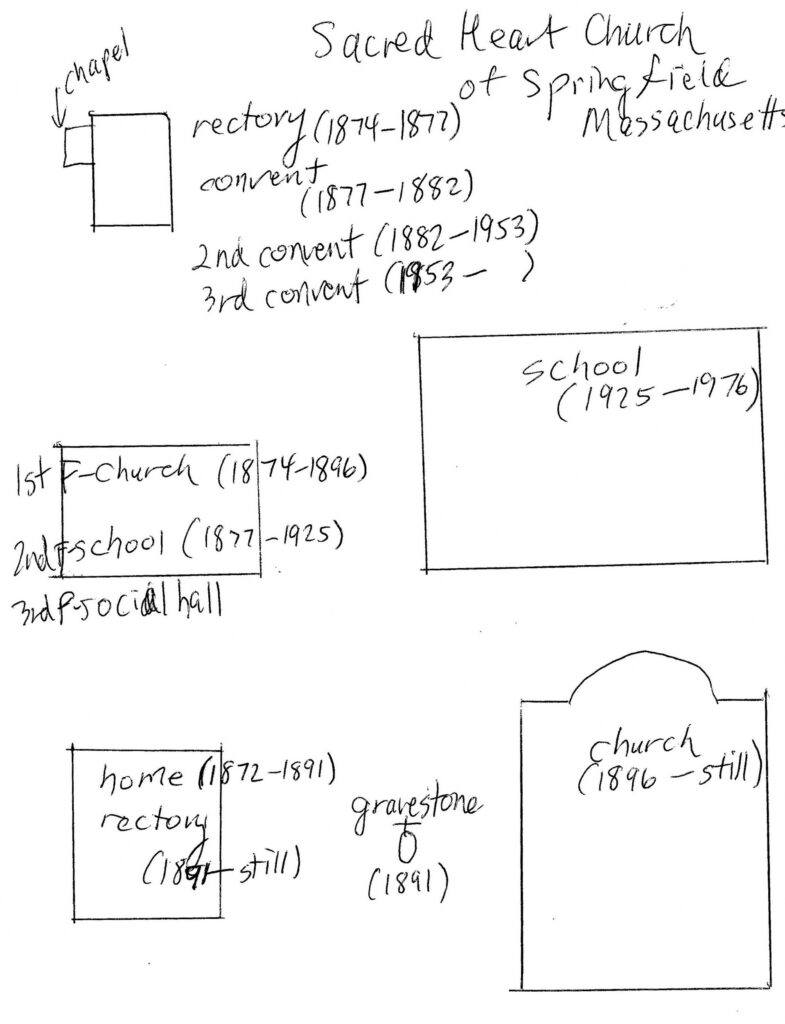 Sacred Heart Church
of Springfield
Massachusetts
chapel
rectory (1874-1877)
convent
(1877-1882)
2nd convent (1882-1953)
3rd convent (1953-    )
school
(1925-1976)
1st F-Church (1874-1896)
2nd F-school (1877-1925)
3rd F-social hall
home (1872-1891)
rectory
(1891-still)
gravestone
(1891)
church
(1896-still)